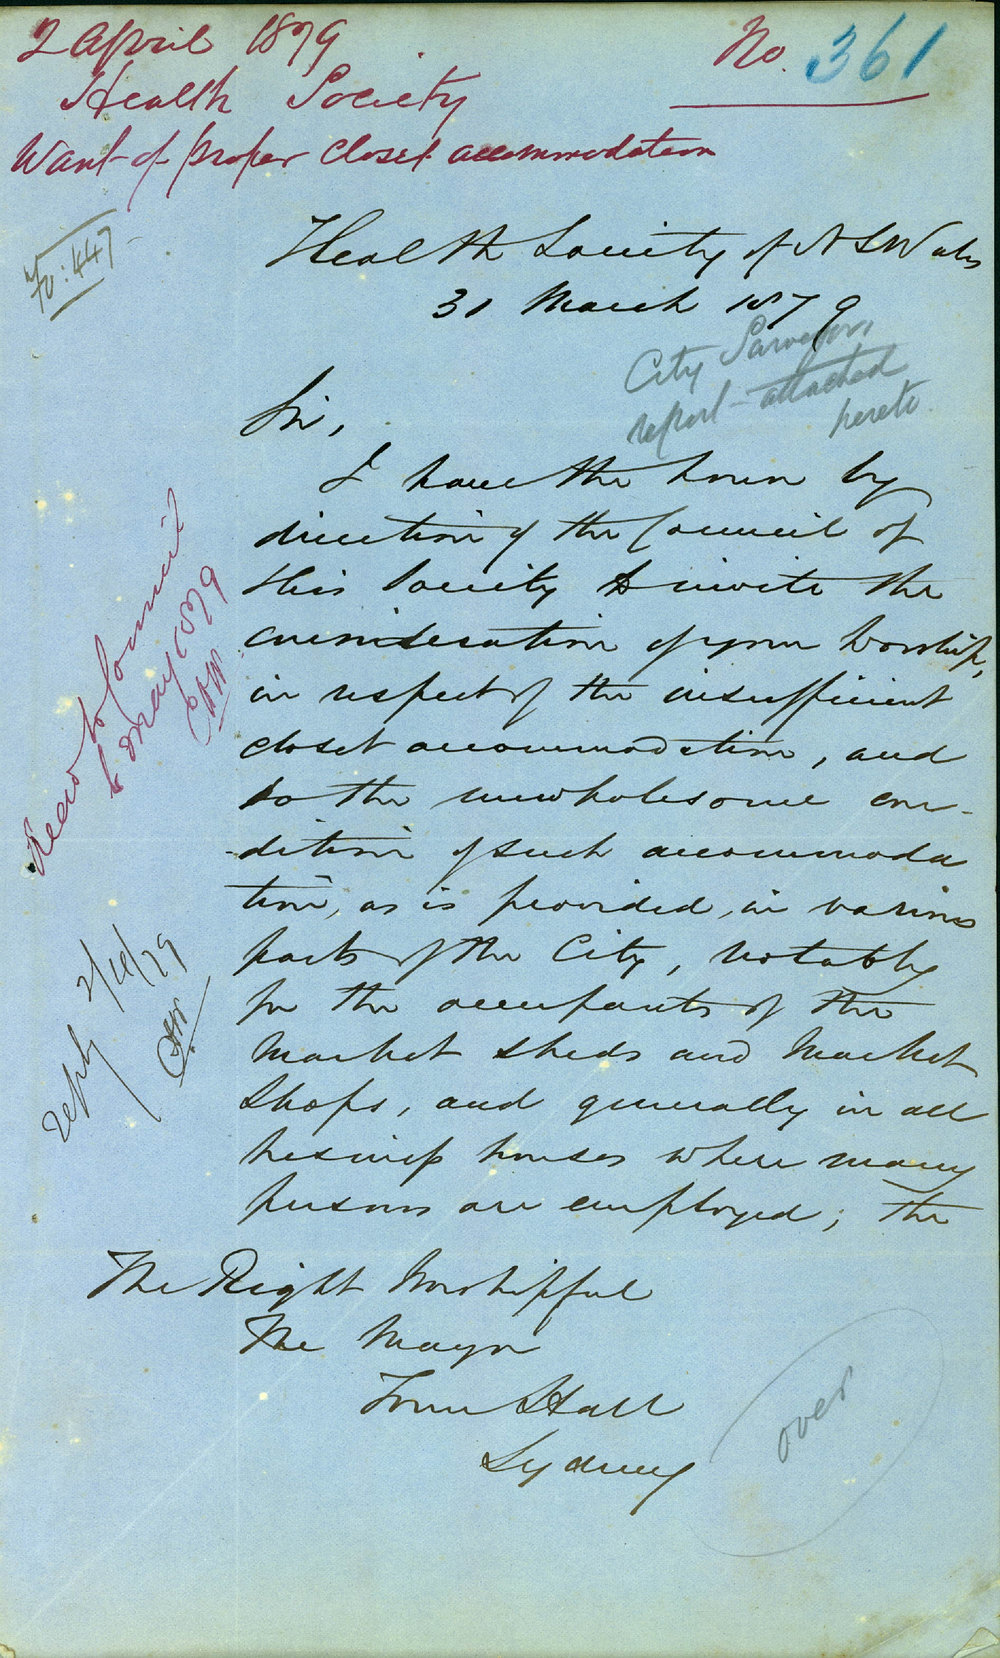 2 April 1879
No. 361
Health Society
Want of proper closet accommodation
No: 447
Health Society of N S Wales
31 March 1879
City Surveyors
report attached
hereto
Sir,
I have the honor by
direction of the Council of
this Society to invite the
consideration of your Worship,
in respect of the insufficient
closet accommodation, and
to the unwholesome con-
-dition of such accommoda
tion, as is provided, in various
parts of the City, notably
for the occupants of the
Market sheds and Market
Shops, and generally in all
business houses where many
persons are employed; the
The Right Worshipful
The Mayor
Town Hall
Sydney
over
to Council
6 May 1879
Reply 2/4/79